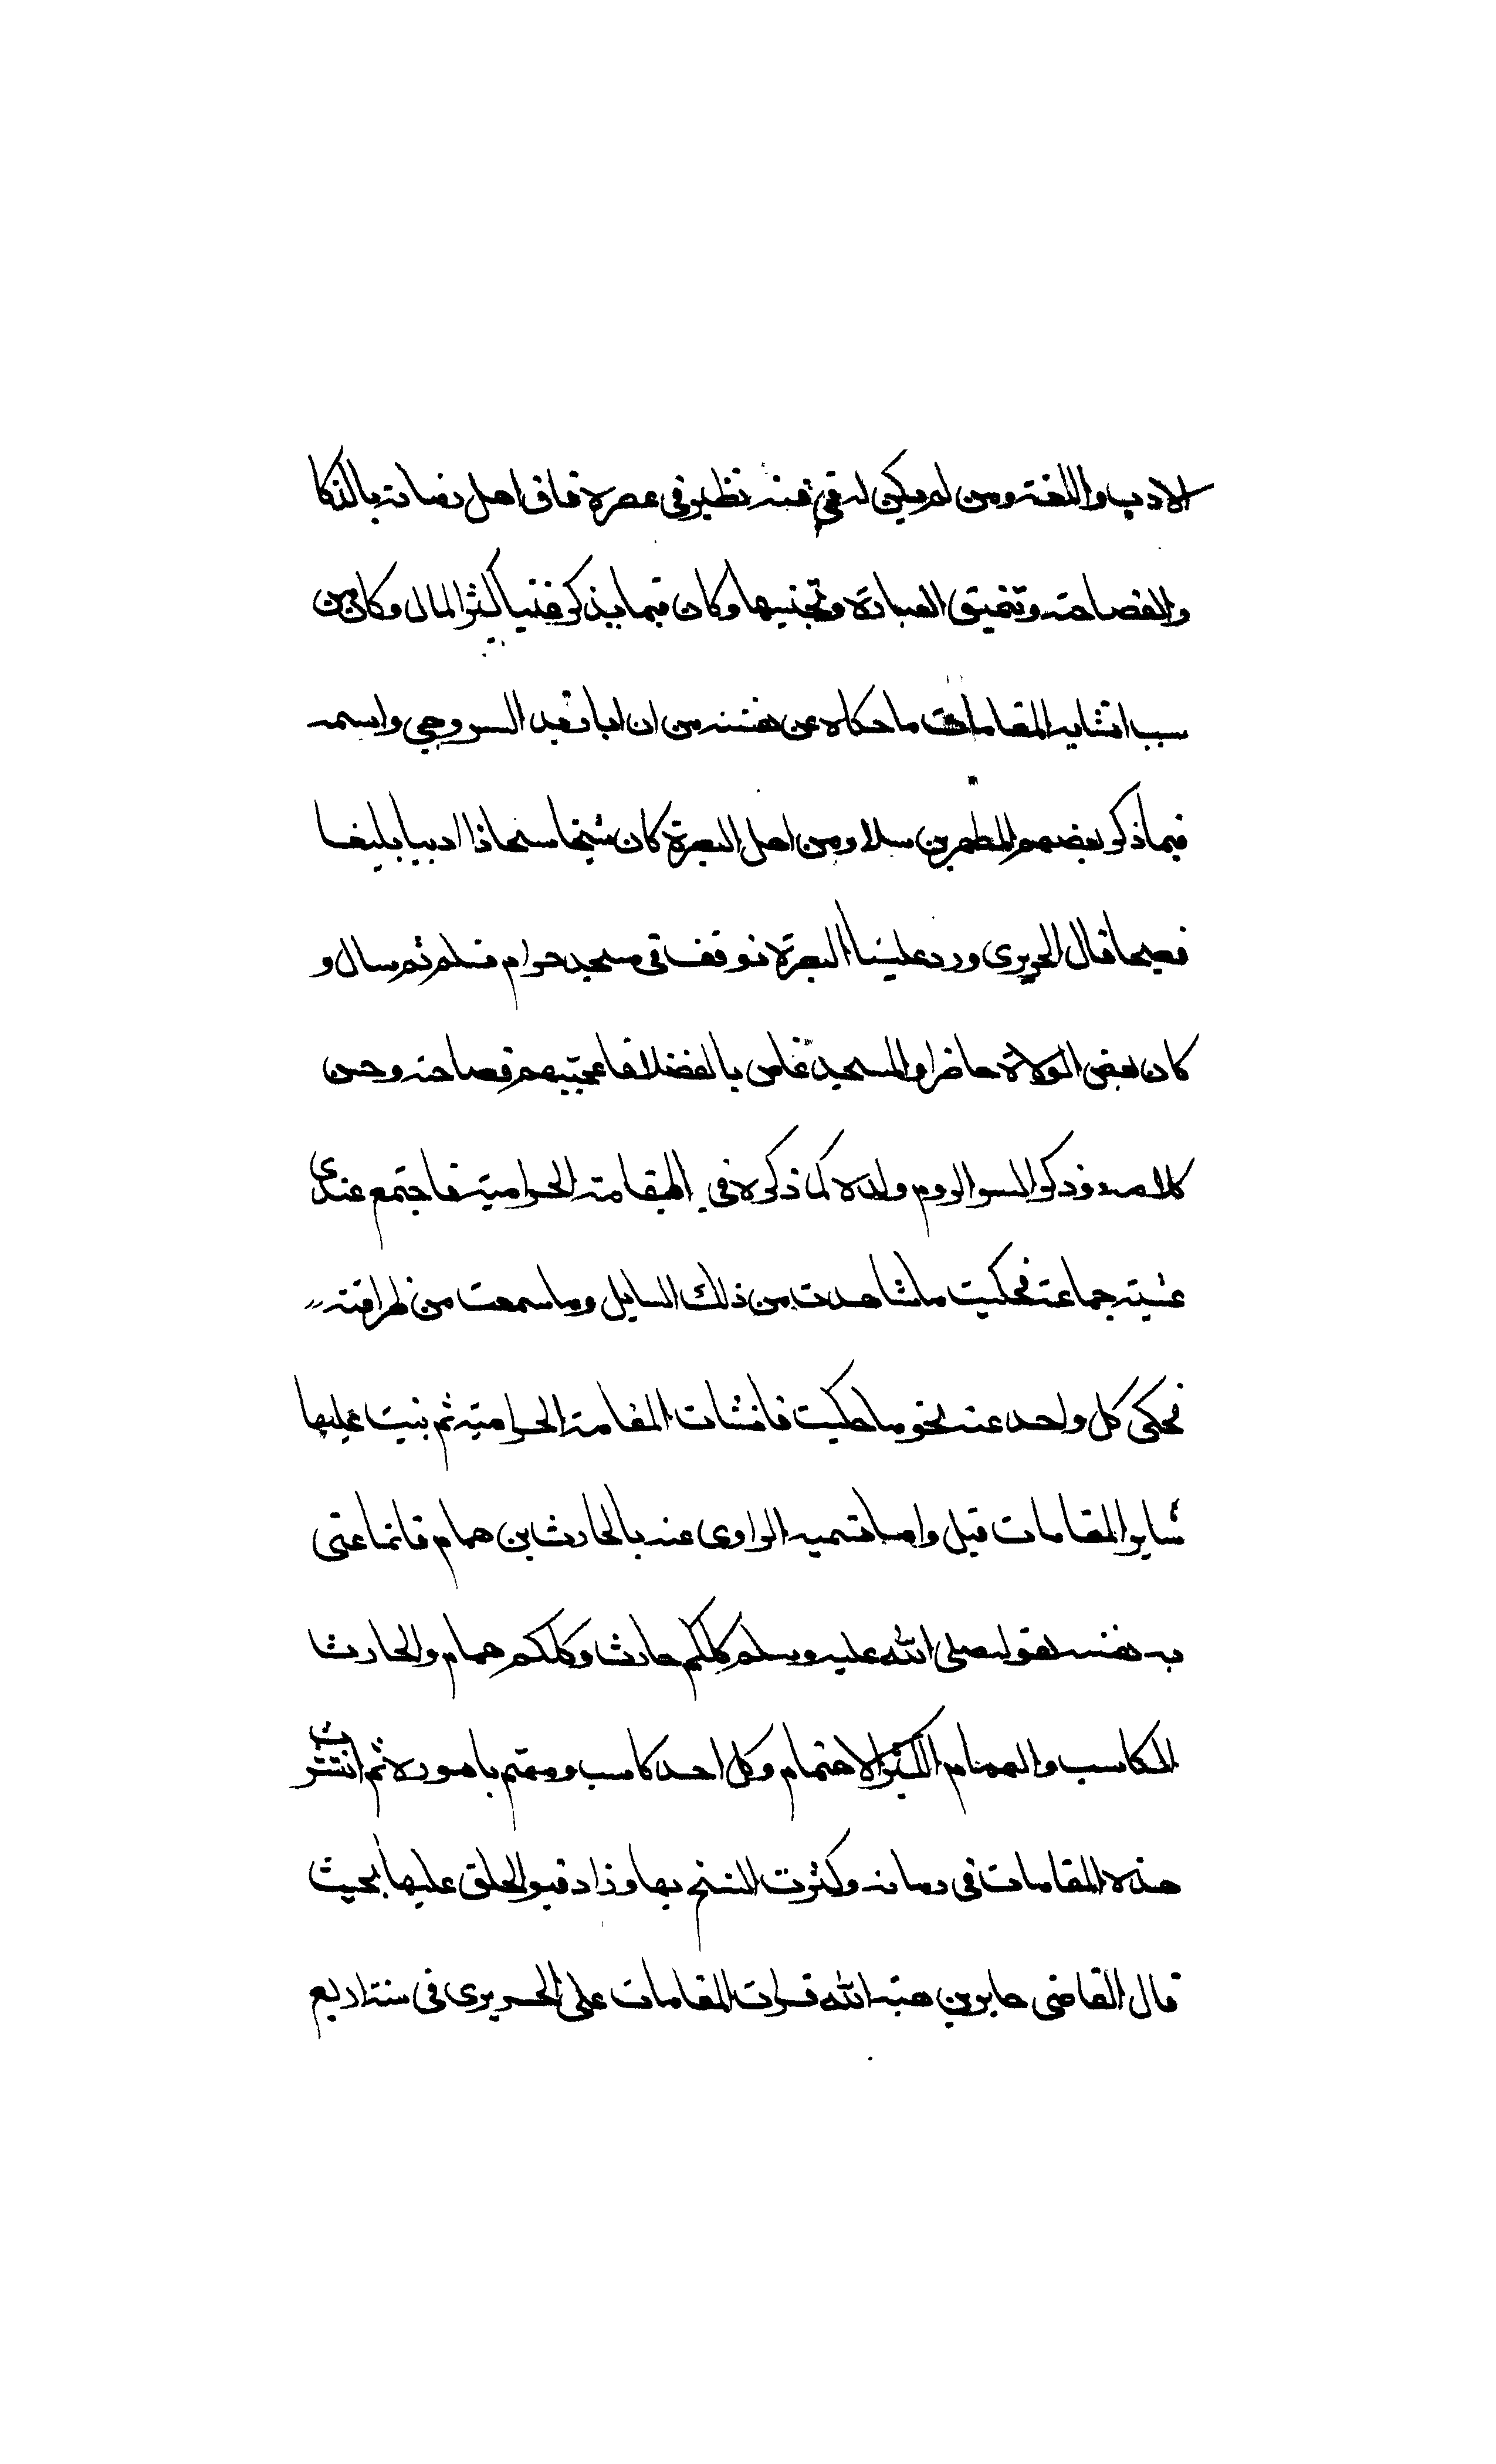 الادب واللغة ومن لم يكن له في فنه نظير في عصره فاق اهل زمانه بالذكا
والفصاحة وتنميق العبارة وتجنيسها وكان فيما يذكر غنيا كثير المال وكان من
سبب انشايه المقامات ما حكاه عن نفسه من ان ابا زيد السروجي واسمه
فيما ذكر بعضهم المطهر بن سلار ومن اهل البصرة كان شيخا سحاذا اديبا بليغا
فصيحا قال الحريرى ورد علينا البصرة فوقف في مسجد حرام فسلم ثم سال و
كان بعض الولاة حاضرا والمسجد غاص بالفضلا فاعجبهم فصاحته وحسن
كلامه وذكر اسر الروم ولده كما ذكره في المقامة الحرامية فاجتمع عندى
عشية جماعة فحكيت ما شاهدت من ذلك السايل وما سمعت من ظرافته
فحكى كل واحد عنه نحو ما حكيت فانشات المقامة الحرامية ثم بنيت عليها
ساير المقامات قيل واما تسميه الراوى عنه بالحارث بن همام فانما عنى
به نفسه لقوله صلى الله عليه وسلم كلكم حارث وكلكم همام والحارث
الكاسب والهمام الكثير الاهتمام وكل احد كاسب ومهتم باموره ثم انتشرت
هذه المقامات في زمانه وكثرت النسخ بها وزاد فيو الخلق عليها بحيث
قال القاضى جابر بن هبة الله قرات المقامات على الحريرى في سنة اربع